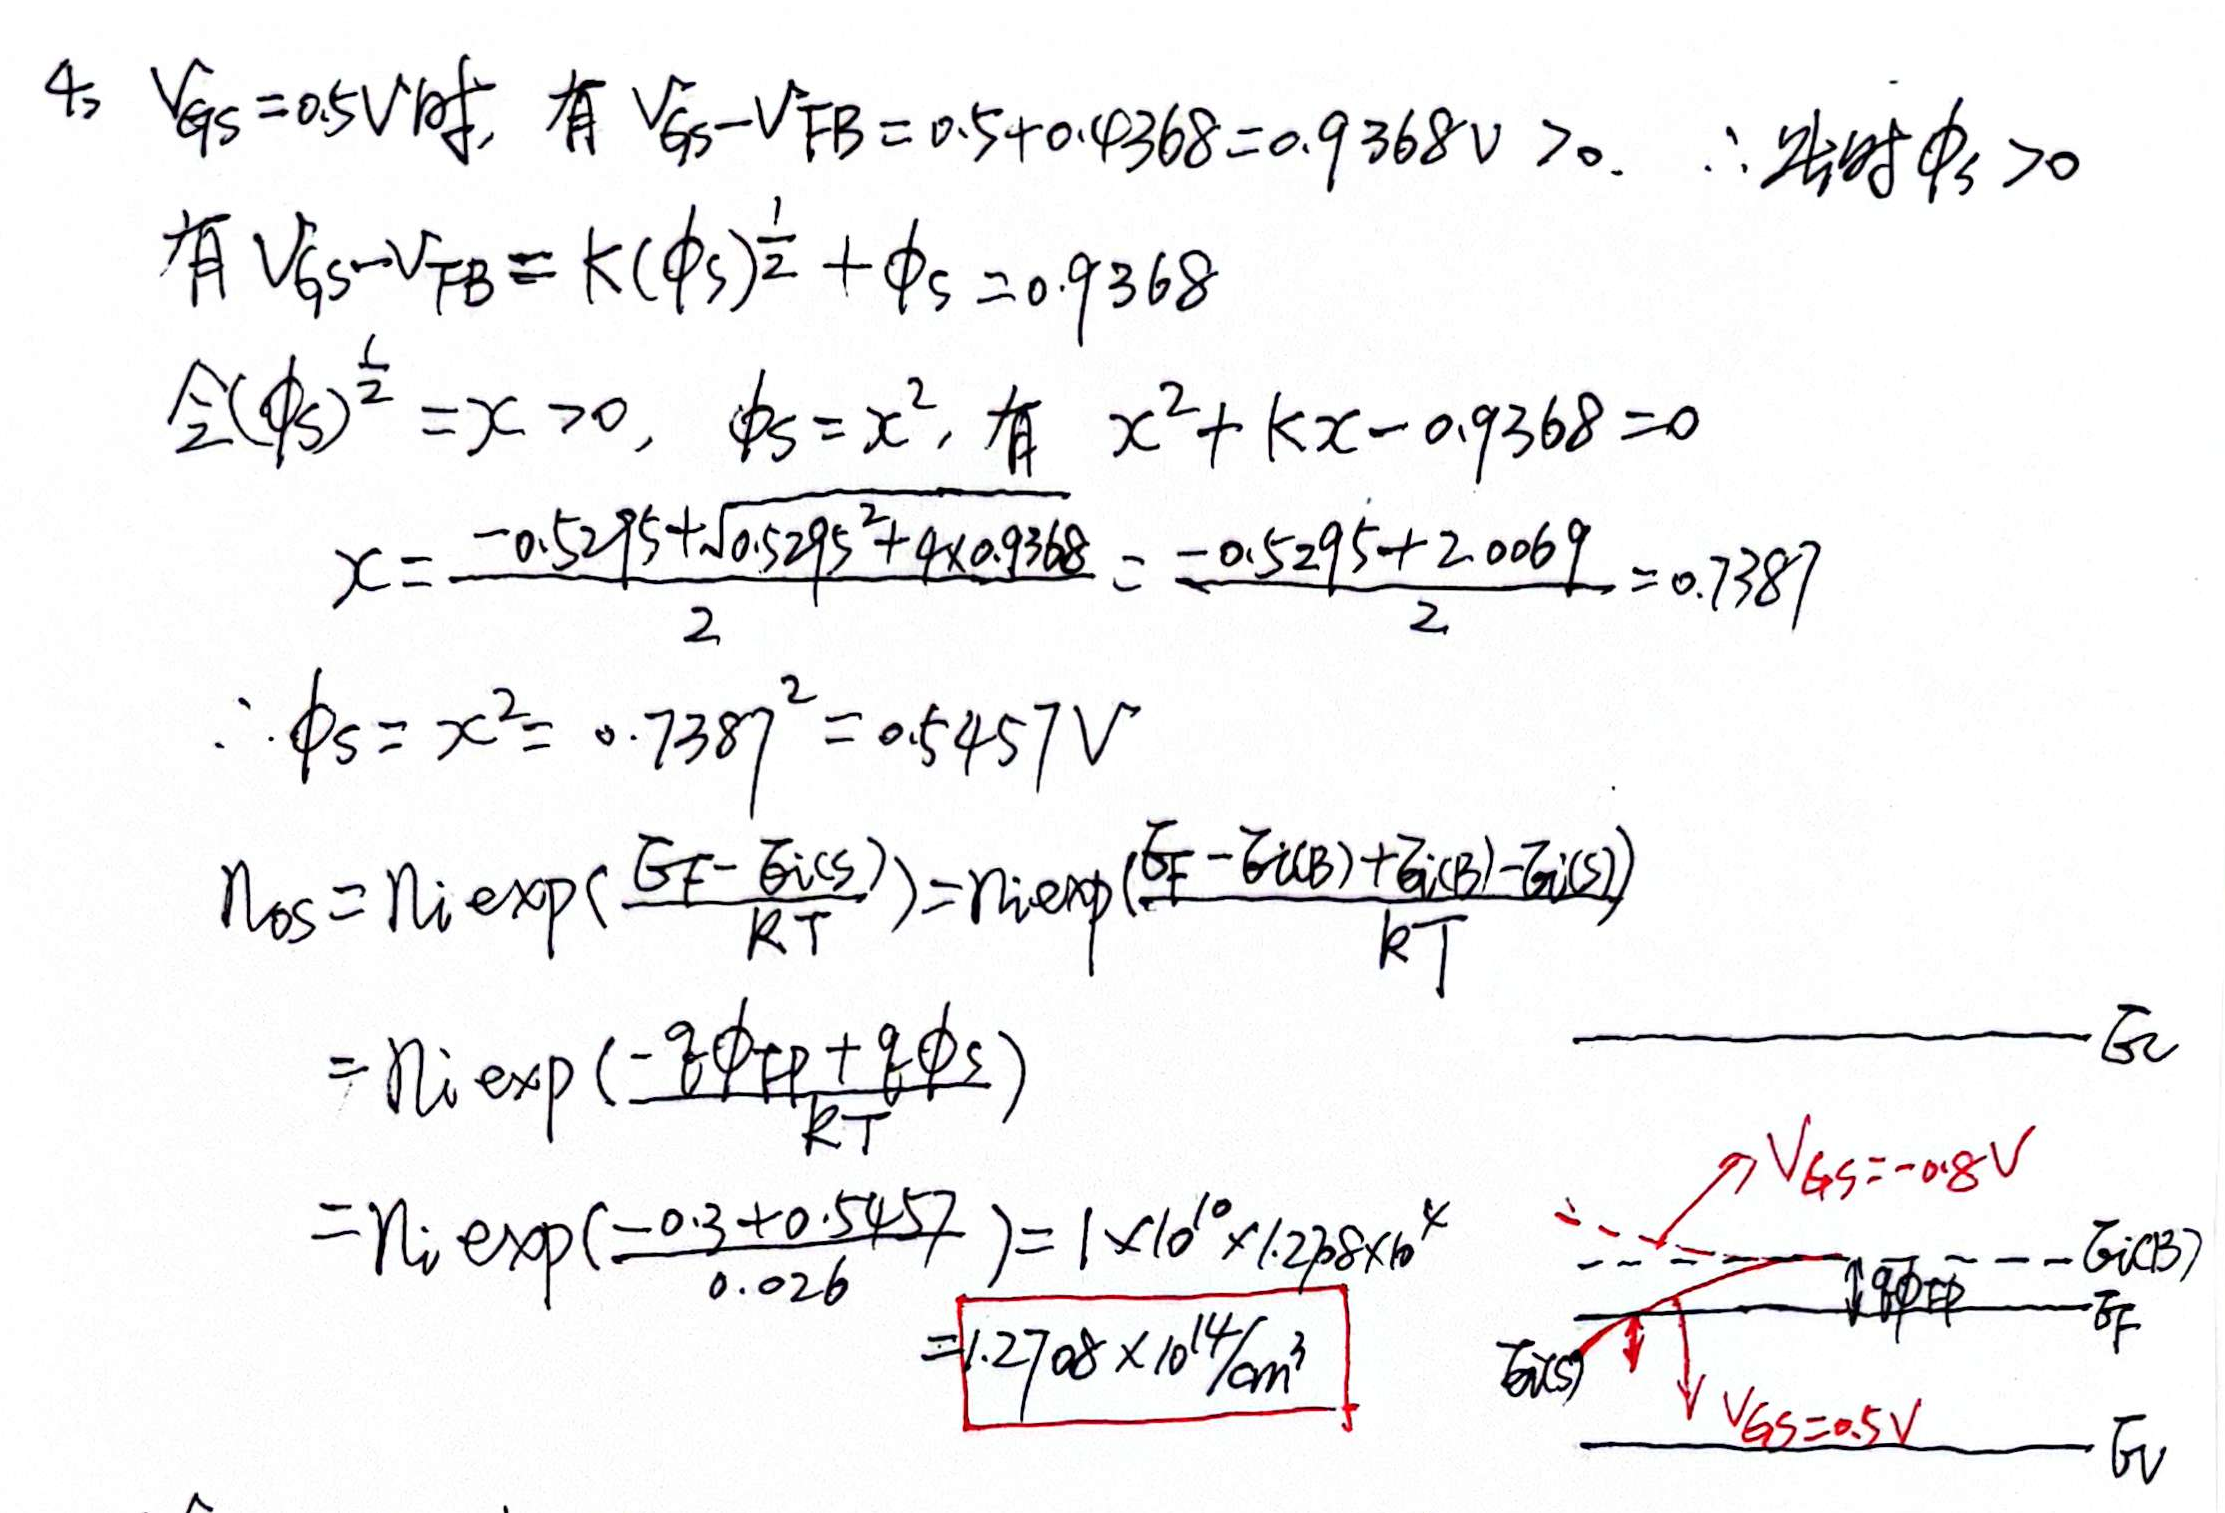 4、V_GS=0.5V时, 有 V_GS-V_FB=0.5+0.4368=0.9368V >0. ∴此时ϕs>0
有 V_GS-V_FB=K(ϕs)^{1/2}+ϕs=0.9368
令(ϕs)^{1/2}=x>0, ϕs=x², 有 x²+Kx-0.9368=0
x=\frac{-0.5295+√(0.5295²+4×0.9368)}{2}=\frac{-0.5295+2.0069}{2}=0.7387
∴ϕs=x²=0.7387²=0.5457V
n_os=n_i exp(\frac{E_F-E_i(s)}{kT})=n_i exp(\frac{E_F-E_i(B)+E_i(B)-E_i(s)}{kT})
=n_i exp(\frac{-qϕ_FP+qϕs}{kT})
=n_i exp(\frac{-0.3+0.5457}{0.026})=1×10^{10}×1.2708×10^4
=1.2708×10^{14}/cm³
Ec
V_GS=-0.8V
E_i(B)
qϕ_FP
E_F
E_i(s)
V_GS=0.5V
Ev